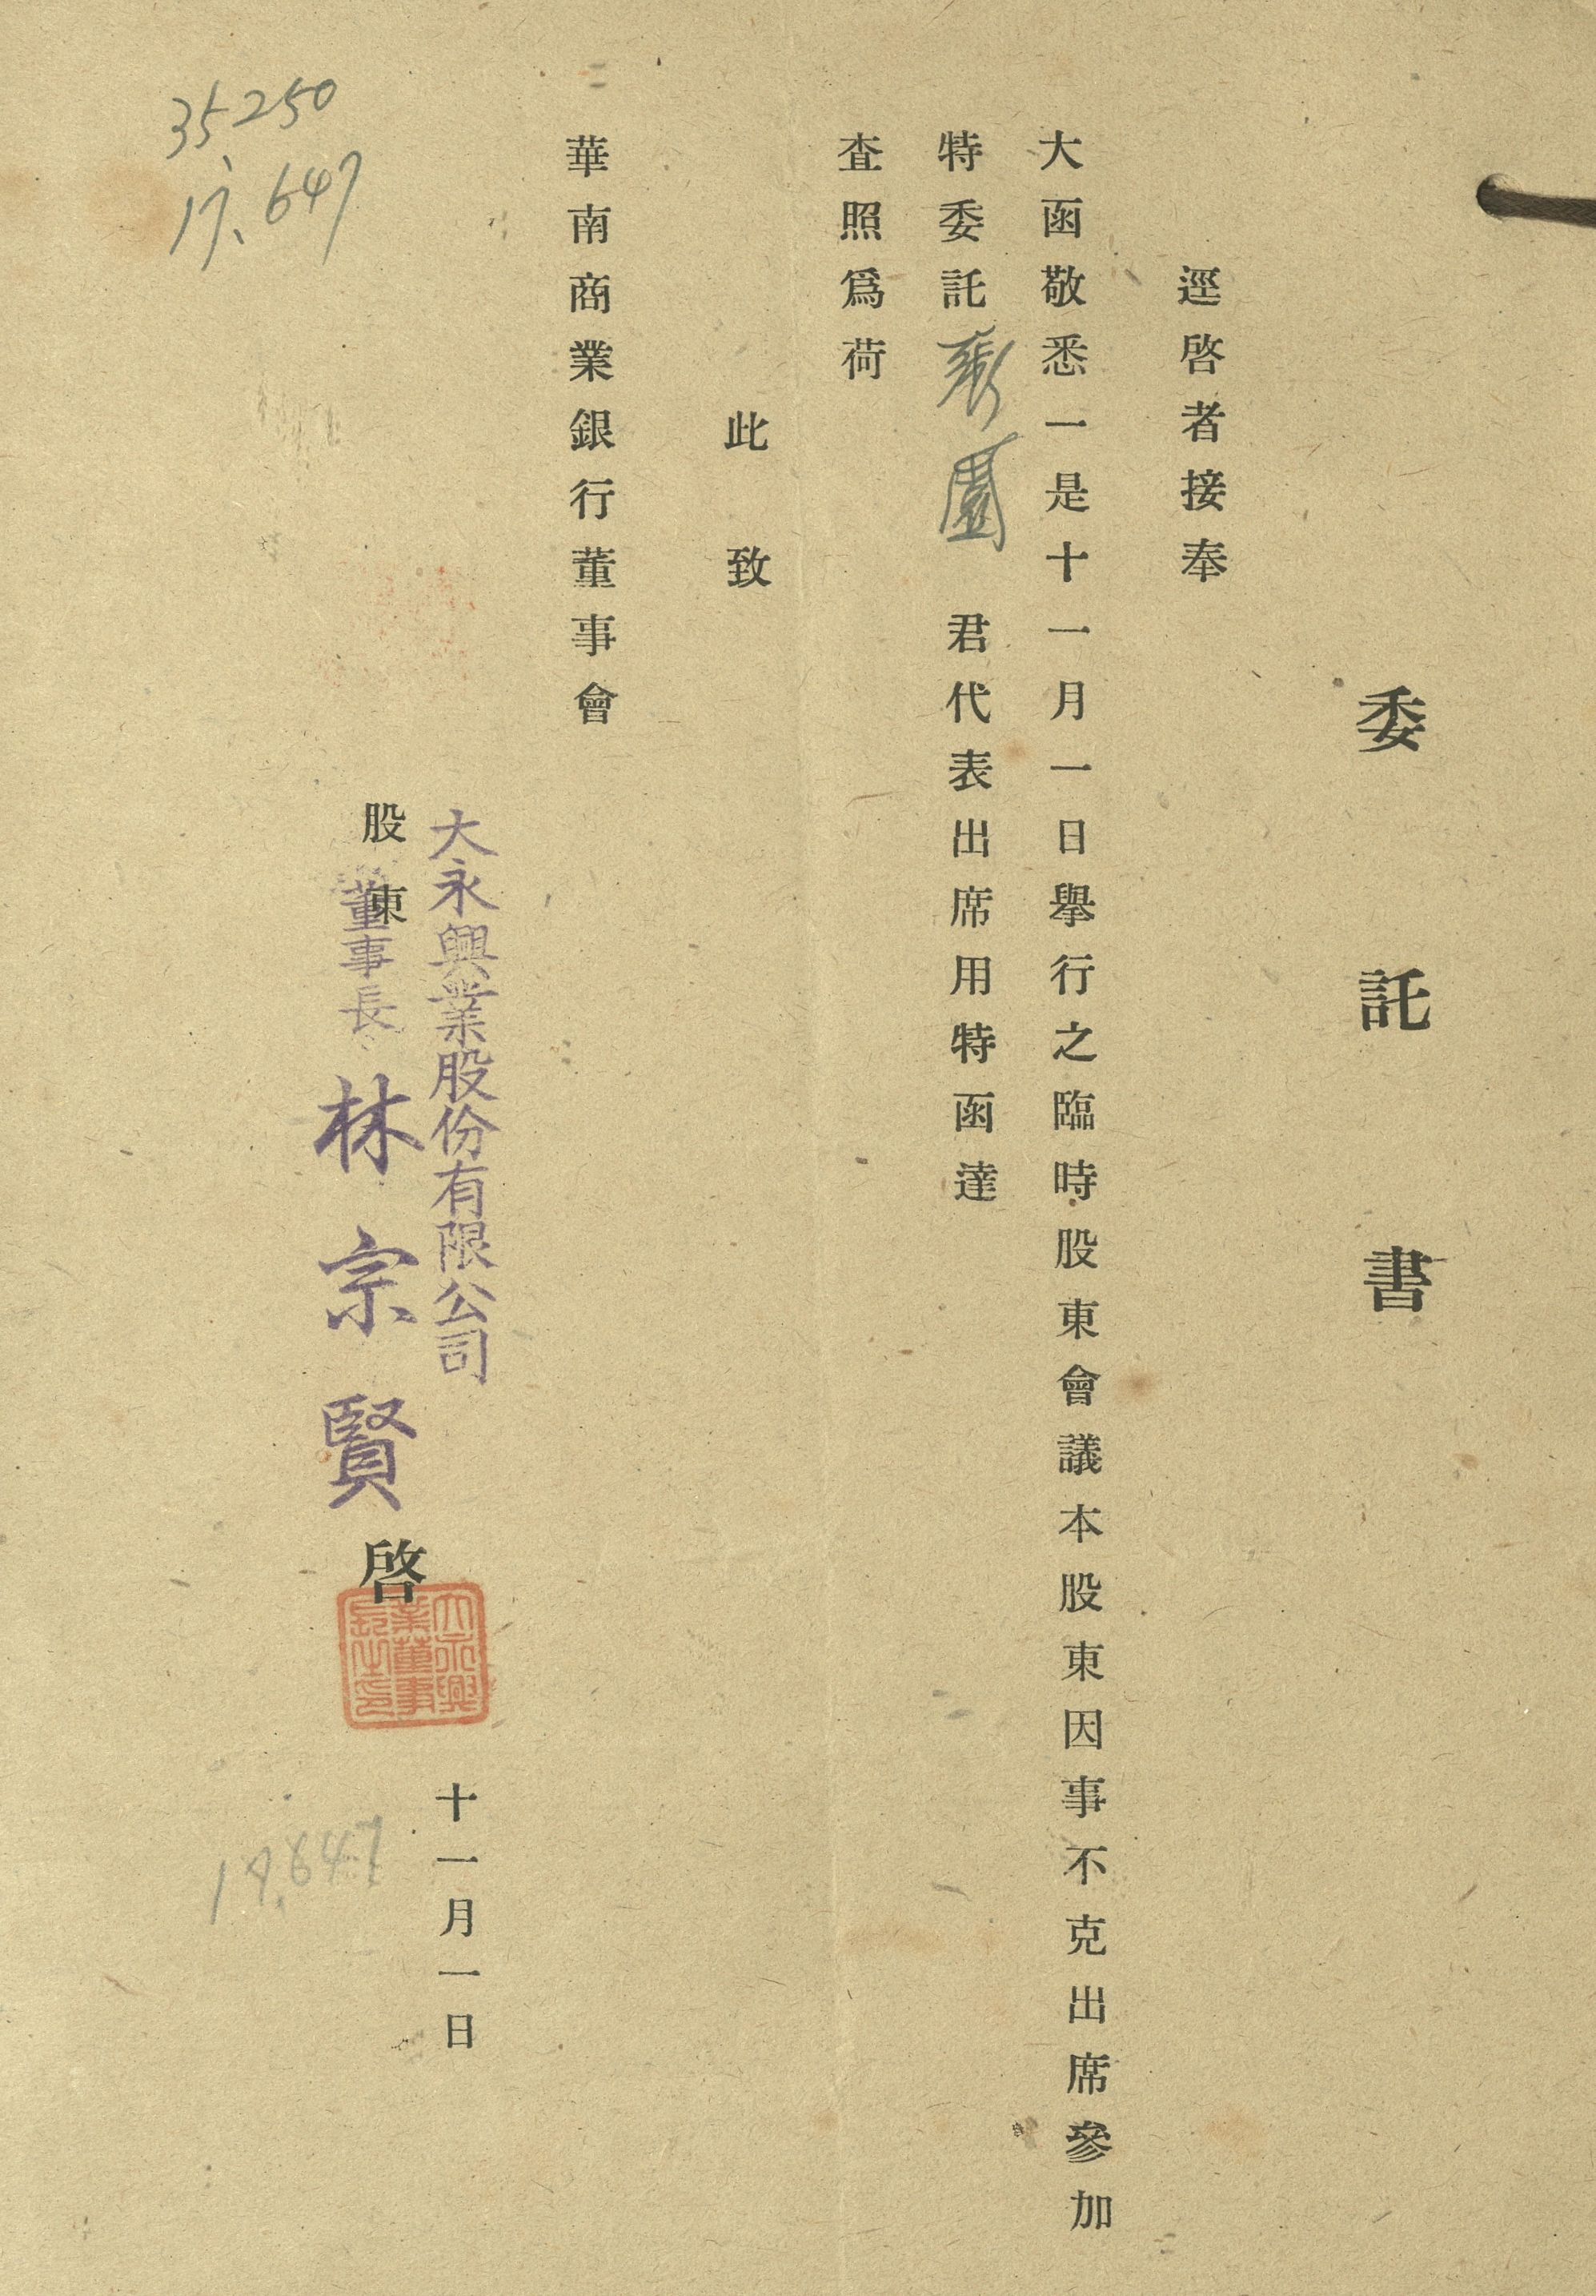 委託書
逕啓者接奉
大函敬悉一是十一月一日舉行之臨時股東會議本股東因事不克出席參加
特委託 園 君代表出席用特函達
查照爲荷
此致
華南商業銀行董事會
大永興業股份有限公司
股東
董事長 林宗賢 啓
大永興
業董事
長之印
十一月一日
35250
17.647
17.647